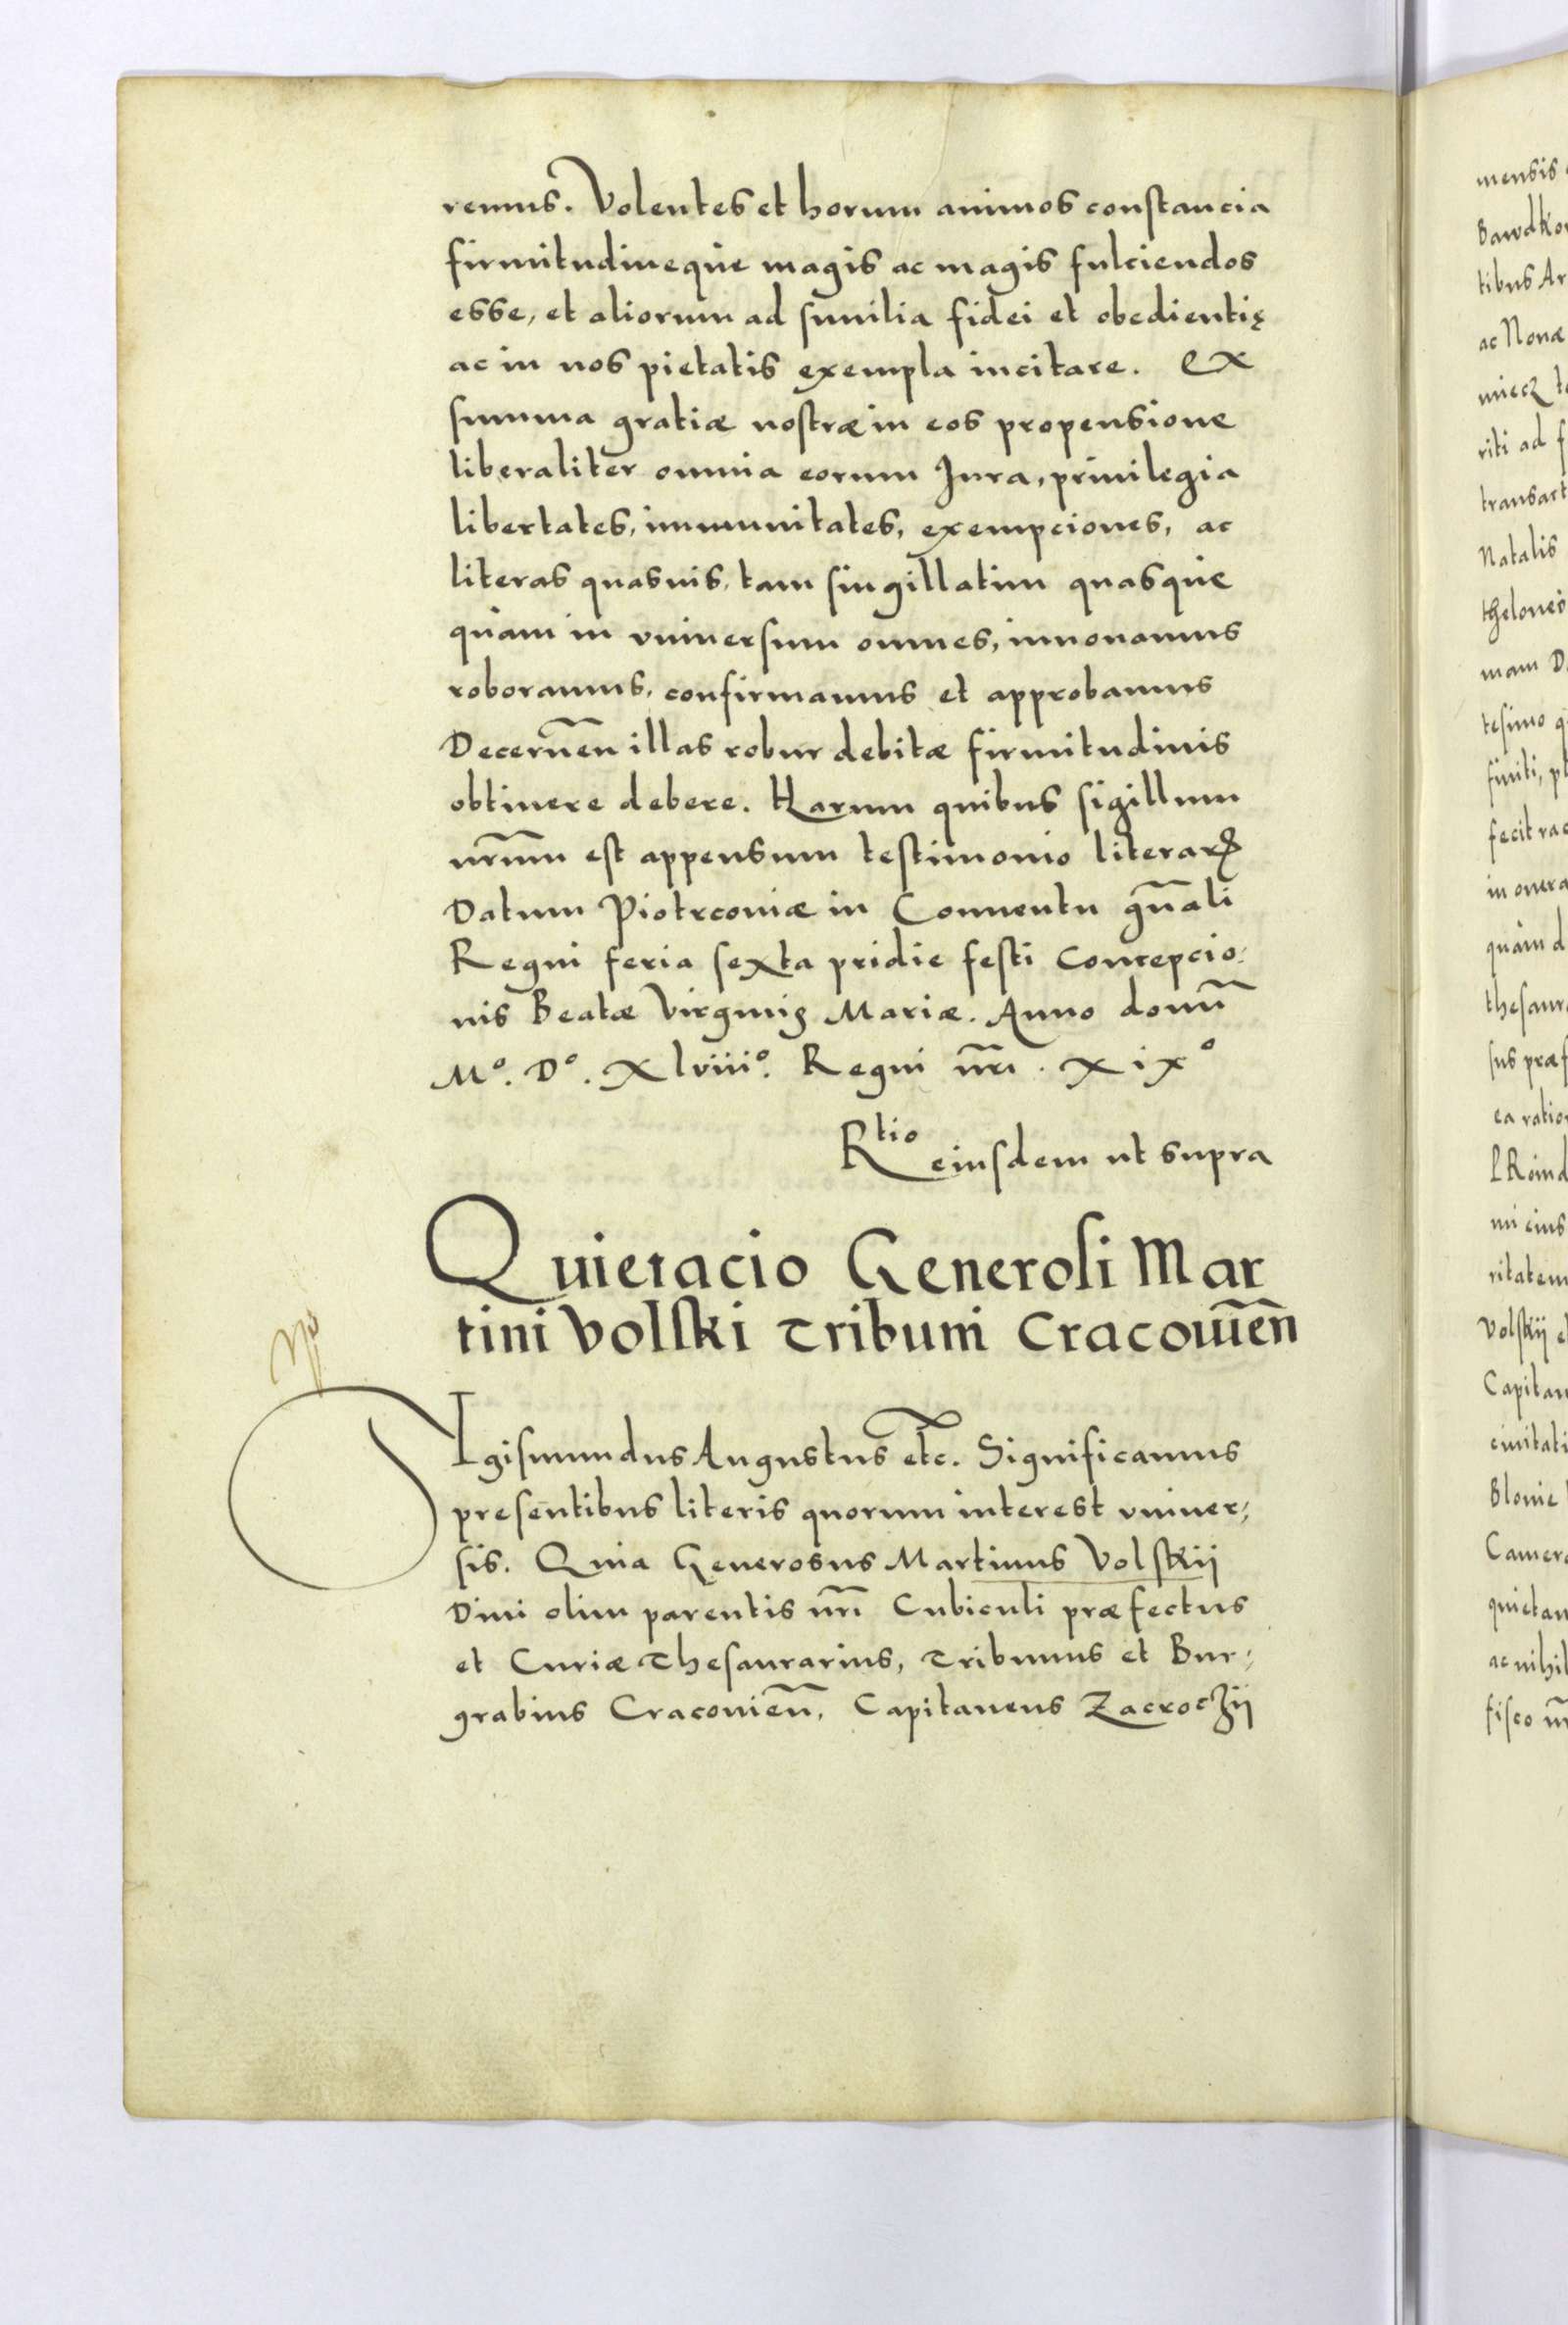 remus. Volentes et horum animos constancia
firmitudineque magis ac magis fulciendos
esse, et aliorum ad similia fidei et obedientię
ac in nos pietatis exempla incitare. Ex
summa gratiæ nostræ in eos propensione
liberaliter omnia eorum Jura, priuilegia
libertates, immunitates, exempciones, ac
literas quasuis, tam singillatim quasque
quàm in vniuersum omnes, innouamus
roboramus, confirmamus et approbamus
Decernen̄ illas robur debitæ firmitudinis
obtinere debere. Harum quibus sigillum
nr̄um est appensum testimonio literarꝝ
Datum Piotrcoviæ in Conuentu gn̄ali
Regni feria sexta pridie festi Concepcio:
nis Beatæ Virginis Mariæ. Anno domi̅
Mº. Dº. Xlviiiº. Regni nr̄i . XiXº
Rtio eiusdem ut supra
Quietacio Generosi Mar
tini Volski Tribuni Cracouien̄
SIgismundus Augustus etc. Significamus
presentibus literis quorum interest vniuer:
sis. Quia Generosus Martinus Volskij
Diui olim parentis nr̄i Cubiculi præfectus
et Curiæ Thesaurarius, Tribunus et Bur:
grabius Cracouien̄, Capitaneus Zacroczij
mensis
Bawdko
tibus Ar
ac Nonæ
miecz t
riti ad f
transact
Natalis
theloneo
mam D
tesimo q
finiti, p
fecit ra
in onera
quàm d
thesaur
sus præf
ea ratio
mi eius
ritatem
Volskij e
Capitan
ciuitati
Blonie
Camer
quietan
ac nihil
fisco nr̄